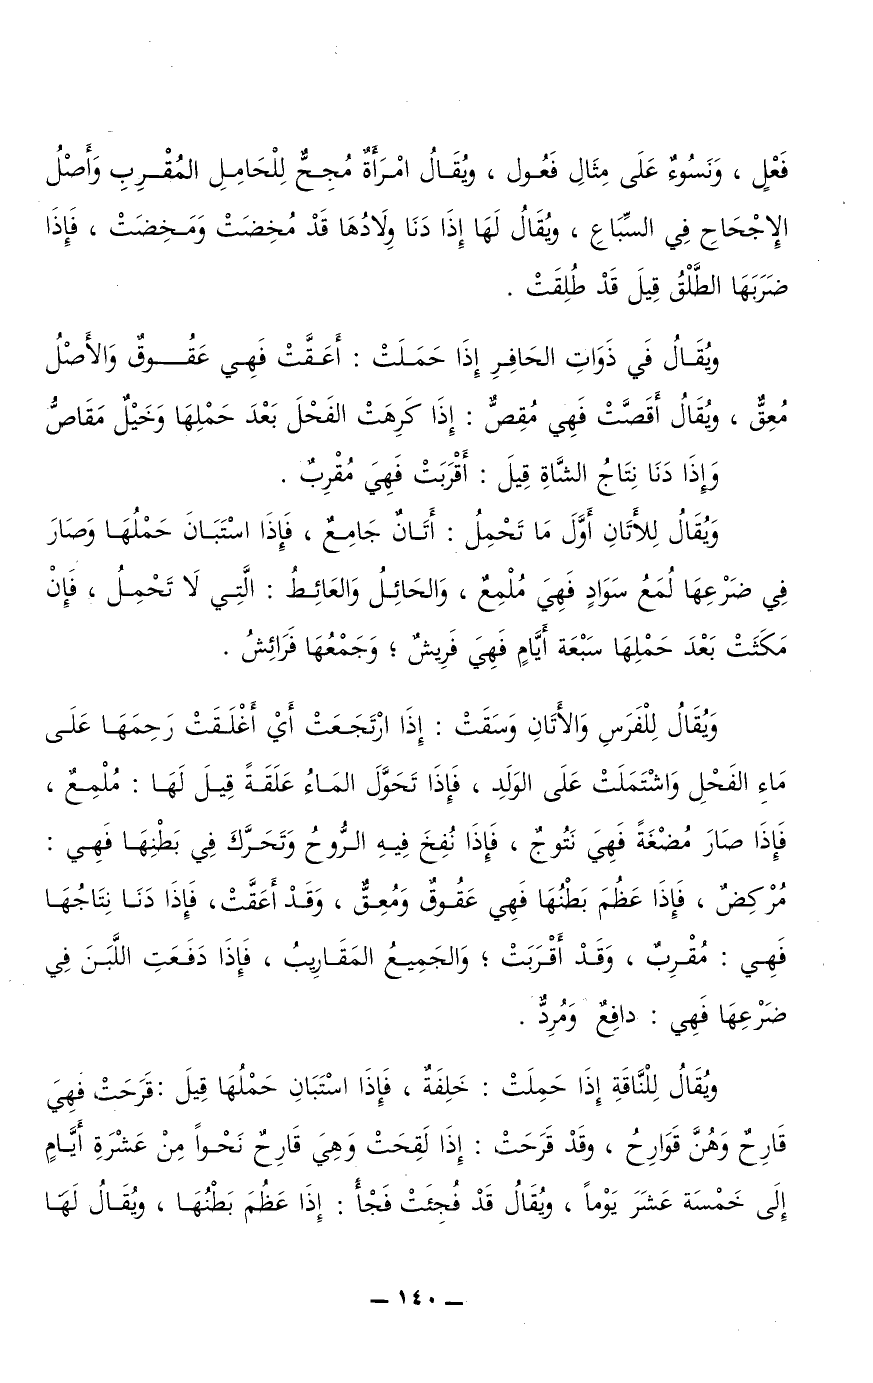 فَعْلٍ ، وَنَسُوءٌ عَلَى مِثَالِ فَعُول ، ويُقَالُ امْرَأَةٌ مُجِحٌّ لِلْحَامِلِ المُقْرِبِ وَأَصْلُ
الإِجْحَاحِ فِي السِّبَاعِ ، ويُقَالُ لَهَا إِذَا دَنَا وِلَادُهَا قَدْ مُخِضَتْ وَمَخِضَتْ ، فَإِذَا
ضَرَبَهَا الطَّلْقُ قِيلَ قَدْ طُلِقَتْ .
ويُقَالُ فَي ذَوَاتِ الحَافِرِ إِذَا حَمَلَتْ : أَعَقَّتْ فَهِي عَقُوقٌ وَالأَصْلُ
مُعِقٌّ ، ويُقَالُ أَقَصَّتْ فَهِي مُقِصٌّ : إِذَا كَرِهَتْ الفَحْلَ بَعْدَ حَمْلِهَا وَخَيْلٌ مَقَاصٌّ
وَإِذَا دَنَا نِتَاجُ الشَّاةِ قِيلَ : أَقْرَبَتْ فَهِيَ مُقْرِبٌ .
وَيُقَالُ لِلأَتَانِ أَوَّلَ مَا تَحْمِلُ : أَتَانٌ جَامِعٌ ، فَإِذَا اسْتَبَانَ حَمْلُهَا وَصَارَ
فِي ضَرْعِهَا لُمَعُ سَوَادٍ فَهِيَ مُلْمِعٌ ، وَالحَائِلُ وَالعَائِطُ : الَّتِي لَا تَحْمِلُ ، فَإِنْ
مَكَثَتْ بَعْدَ حَمْلِهَا سَبْعَة أَيَّامٍ فَهِيَ فَرِيشٌ ؛ وَجَمْعُهَا فَرَائِشُ .
وَيُقَالُ لِلْفَرَسِ وَالأَتَانِ وَسَقَتْ : إِذَا ارْتَجَعَتْ أَيْ أَغْلَقَتْ رَحِمَهَا عَلَى
مَاءِ الفَحْلِ وَاشْتَمَلَتْ عَلَى الوَلَدِ ، فَإِذَا تَحَوَّلَ المَاءُ عَلَقَةً قِيلَ لَهَا : مُلْمِعٌ ،
فَإِذَا صَارَ مُضْغَةً فَهِيَ نَتُوجٌ ، فَإِذَا نُفِخَ فِيهِ الرُّوحُ وَتَحَرَّكَ فِي بَطْنِهَا فَهِي :
مُرْكِضٌ ، فَإِذَا عَظُمَ بَطْنُهَا فَهِي عَقُوقٌ وَمُعِقٌّ ، وَقَدْ أَعَقَّتْ، فَإِذَا دَنَا نِتَاجُهَا
فَهِي : مُقْرِبٌ ، وَقَدْ أَقْرَبَتْ ؛ وَالجَمِيعُ المَقَارِيبُ ، فَإِذَا دَفَعَتِ اللَّبَنَ فِي
ضَرْعِهَا فَهِي : دافِعٌ وَمُرِدٌّ .
ويُقَالُ لِلْنَّاقَةِ إِذَا حَمِلَتْ : خَلِفَةٌ ، فَإِذَا اسْتَبَانِ حَمْلُهَا قِيلَ :قَرَحَتْ فَهِيَ
قَارِحٌ وَهُنَّ قَوَارِحُ ، وقَدْ قَرَحَتْ : إِذَا لَقِحَتْ وَهِيَ قَارِحٌ نَحْواً مِنْ عَشْرَةِ أَيَّامٍ
إِلَى خَمْسَة عَشَرَ يَوْماً ، ويُقَالُ قَدْ فُجِئَتْ فَجْأً : إِذَا عَظُمَ بَطْنُهَا ، ويُقَالُ لَهَا
ــ ١٤٠ ــ